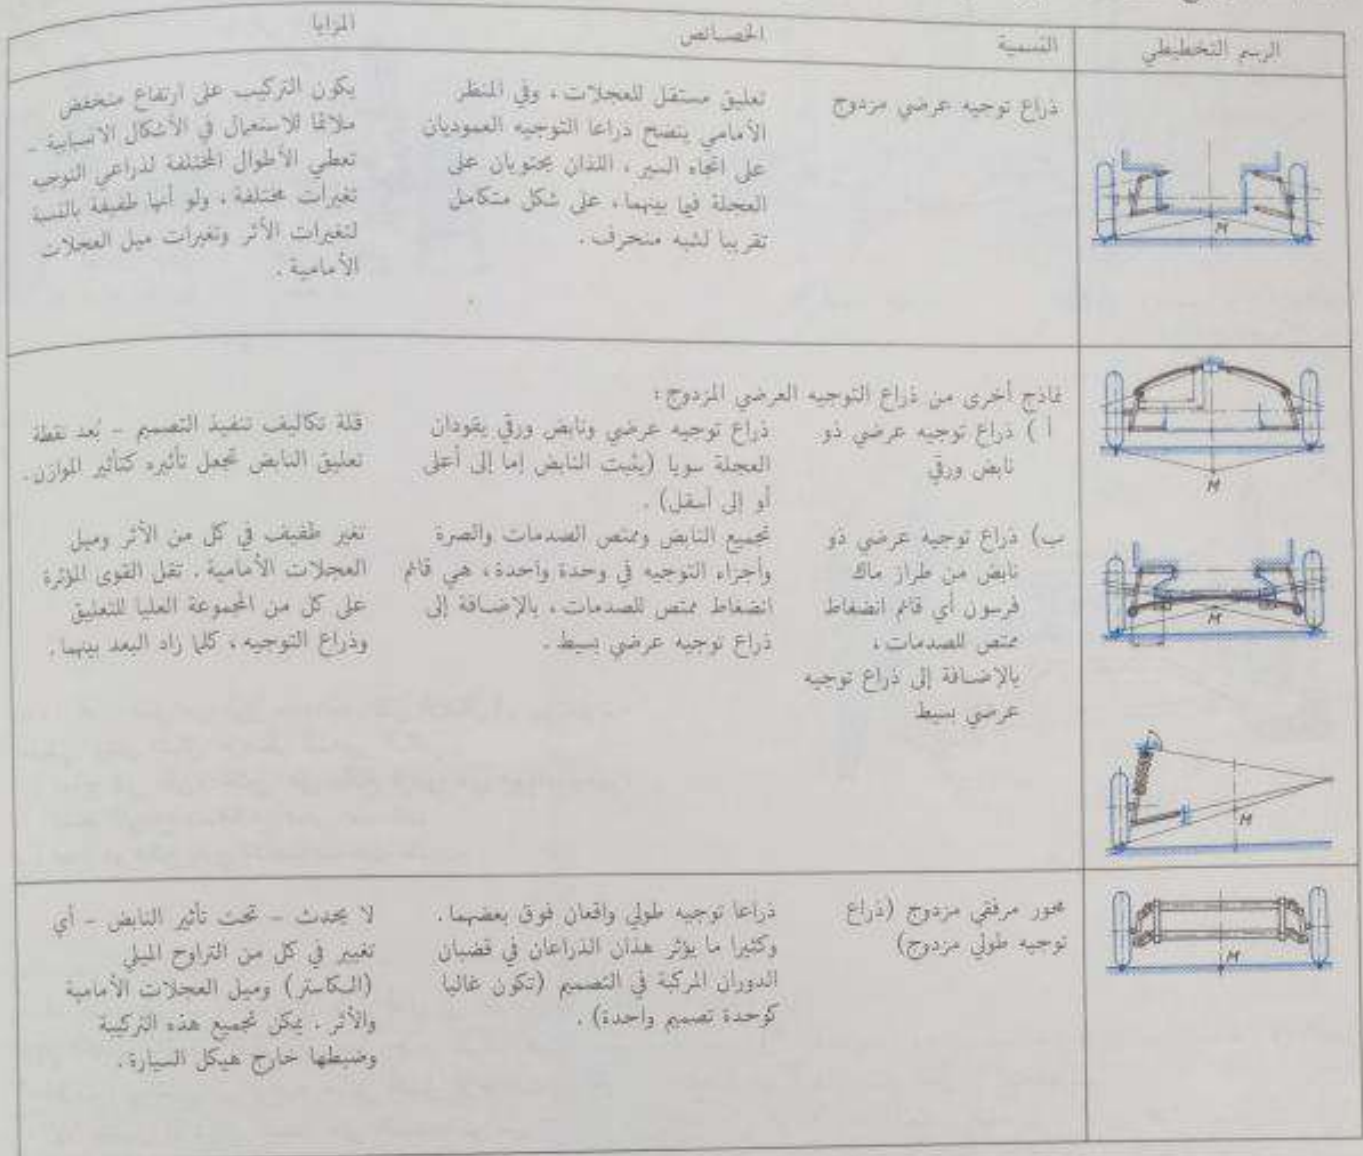 الرسم التخطيطي
التسمية
الخصائص
المزايا
ذراع توجيه عرضي مزدوج
تعليق مستقل للعجلات ، وفي المنظر
الأمامي يتضح ذراعا التوجيه العموديان
على اتجاه السير ، اللذان يحتويان على
العجلة فيما بينهما ، على شكل متكامل
تقريبا لشبه منحرف .
يكون التركيب على ارتفاع منخفض
ملائمًا للاستعمال في الأشكال الانسيابية –
تعطي الأطوال المختلفة لذراعي التوجيه
تغيرات مختلفة ، ولو أنها طفيفة بالنسبة
لتغيرات الأثر وتغيرات ميل العجلات
الأمامية .
M
نماذج أخرى من ذراع التوجيه العرضي المزدوج :
أ ) ذراع توجيه عرضي ذو
نابض ورقي
ذراع توجيه عرضي ونابض ورقي يقودان
العجلة سويا (يثبت النابض إما إلى أعلى
أو إلى أسفل) .
قلة تكاليف تنفيذ التصميم – بُعد نقطة
تعليق النابض تجعل تأثيره كتأثير الموازن .
M
ب) ذراع توجيه عرضي ذو
نابض من طراز ماك
فرسون أي قائم انضغاط
ممتص للصدمات ،
بالإضافة إلى ذراع توجيه
عرضي بسيط
تجميع النابض وممتص الصدمات والصرة
وأجزاء التوجيه في وحدة واحدة ، هي قائم
انضغاط ممتص للصدمات ، بالإضافة إلى
ذراع توجيه عرضي بسيط .
تغير طفيف في كل من الأثر وميل
العجلات الأمامية . تقل القوى المؤثرة
على كل من المجموعة العليا للتعليق
وذراع التوجيه ، كلما زاد البعد بينهما .
M
M
محور مرفقي مزدوج (ذراع
توجيه طولي مزدوج)
ذراعا توجيه طولي واقعان فوق بعضهما .
وكثيرا ما يؤثر هذان الذراعان في قضبان
الدوران المركبة في التصميم (تكون غالبا
كوحدة تصميم واحدة) .
لا يحدث – تحت تأثير النابض – أي
تغيير في كل من التراوح الميلي
(الكاستر) وميل العجلات الأمامية
والأثر . يمكن تجميع هذه التركيبة
وضبطها خارج هيكل السيارة .
M